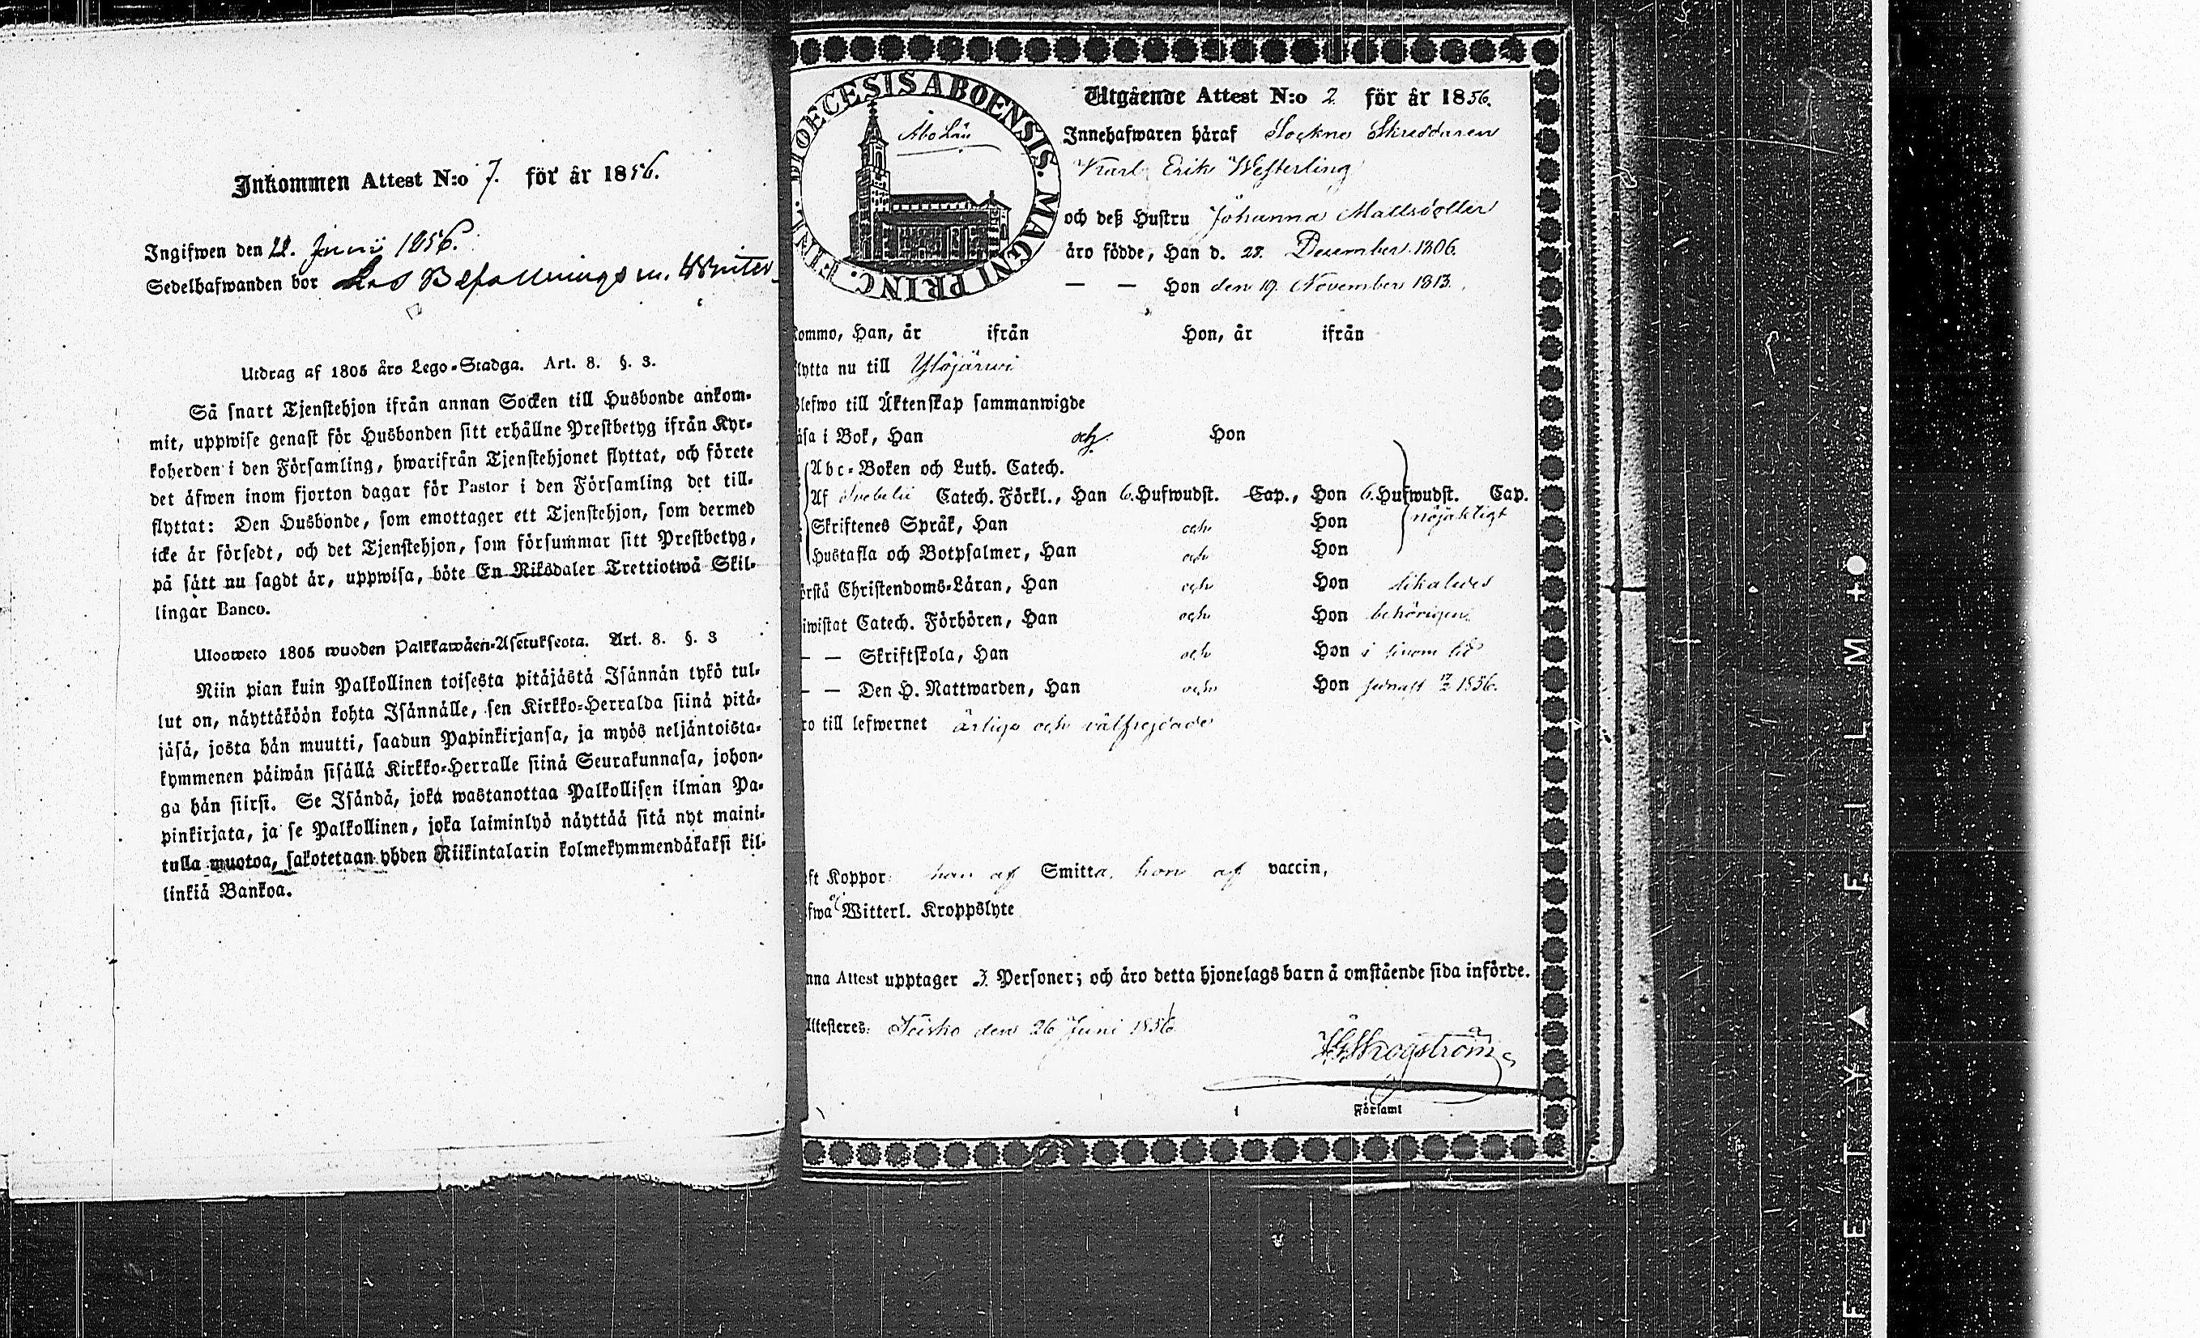 Inkommen Attest N:o 7. för år 1856.
Ingifwen den Juni 1856.
Sedelhafwanden bor Befallningsm.
Utdrag af 1805 års Lego-Stadga. Art. 8. §. 3.
Så snart Tjenstehjon ifrån annan Socken till Husbonde ankom-
mit, uppwise genast för Husbonden sitt erhållne Prestbetyg ifrån Kyr-
koherden i den Församling, hwarifrån Tjenstehjonet flyttat, och förete
det äfwen inom fjorton dagar för Pastor i den Församling det till-
flyttat: Den Husbonde, som emottager ett Tjenstehjon, som dermed
icke är försedt, och det Tjenstehjon, som försummar sitt Prestbetyg,
på sätt nu sagdt är, uppwisa, böte En Riksdaler Trettiotwå Skil-
lingar Banco.
Ulosweto 1805 wuoden Palkkawäen-Asetuksesta. Art. 8. §. 3
Niin pian kuin Palkollinen toisesta pitäjästä Isännän tykö tul-
lut on, näyttäköön kohta Isännälle, sen Kirkko-Herralda siinä pitä-
jäsä, josta hän muutti, saadun Papinkirjansa, ja myös neljäntoista-
kymmenen päiwän sisällä Kirkko-Herralle siinä Seurakunnasa, johon-
ga hän siirsi. Se Isändä, joka wastanottaa Palkollisen ilman Pa-
pinkirjata, ja se Palkollinen, joka laiminlyö näyttää sitä nyt maini-
tulla muotoa, sakotetaan yhden Riikintalarin kolmekymmendäkaksi kil-
linkiä Bankoa.
DIOECESIS ABOENSIS. MAGNI PRINC. FINL.
Åbo Län
Utgående Attest N:o 2 för år 1856.
Innehafwaren häraf Sockne Skreddaren
Karl Erik Westerling
och deß Hustru Johanna Mattsdotter
äro födde, Han d. 28. December 1806.
— — Hon den 19. November 1813.
kommo, Han, år ifrån Hon, år ifrån
flytta nu till Ylöjärwi
blefwo till Äktenskap sammanwigde
läsa i Bok, Han och Hon
Abc-Boken och Luth. Catech.
Af Svebelii Catech. Förkl., Han 6. Hufwudst. Cap., Hon 6. Hufwudst. Cap.
Skriftenes Språk, Han och Hon nöjaktigt
Hustafla och Botpsalmer, Han och Hon
örstå Christendoms-Läran, Han och Hon likaledes
iwistat Catech. Förhören, Han och Hon behörigen
— — Skriftskola, Han och Hon i sinom tid
— — Den H. Nattwarden, Han och Hon sednast 1856.
ro till lefwernet ärliga och välfrejdade
ft Koppor han af Smitta, hon af vaccin,
fwa Witterl. Kroppslyte
nna Attest upptager 3. Personer; och äro detta hjonelags barn å omstående sida införde.
Attesteres: Teisko den 26 Juni 1856
Skogström
Församl
FETYA FILM